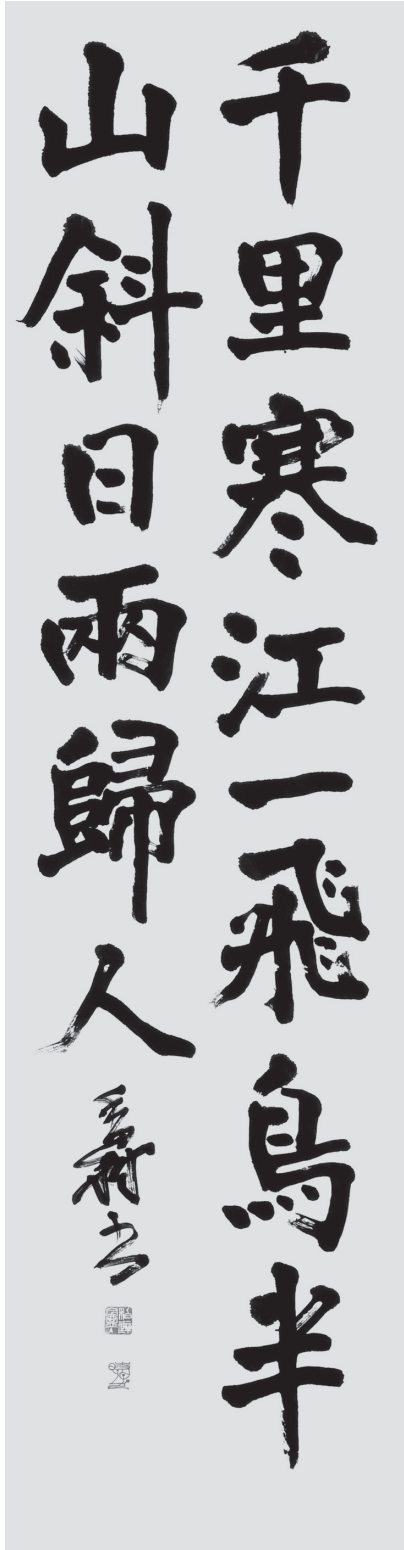 千里寒江一飛鳥半
山斜日兩歸人